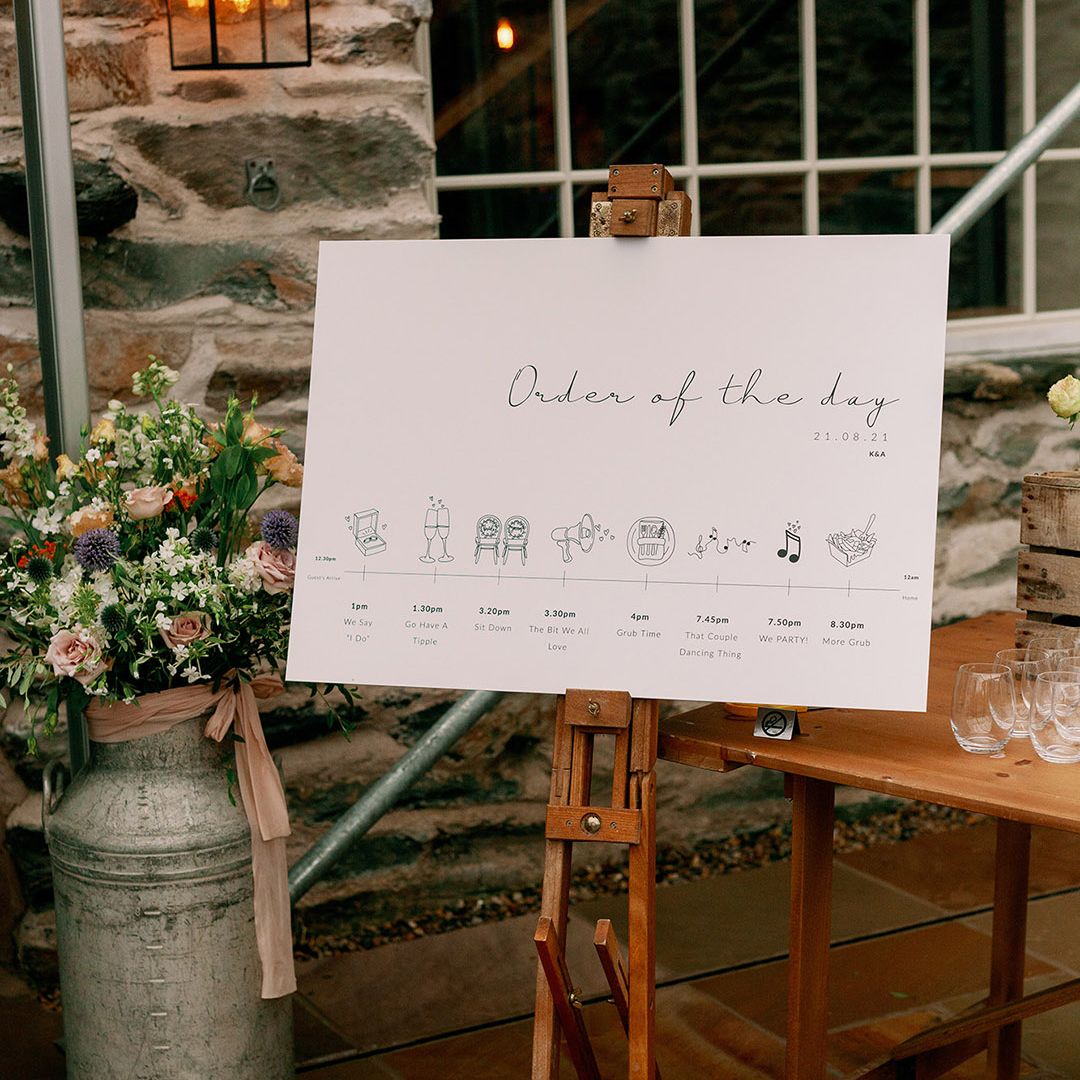 Order of the day
21.08.21
K&A
12.30pm
Guest's Arrive
1pm
We Say
"I Do"
1.30pm
Go Have A
Tipple
3.20pm
Sit Down
3.30pm
The Bit We All
Love
4pm
Grub Time
7.45pm
That Couple
Dancing Thing
7.50pm
We PARTY!
8.30pm
More Grub
12am
Home